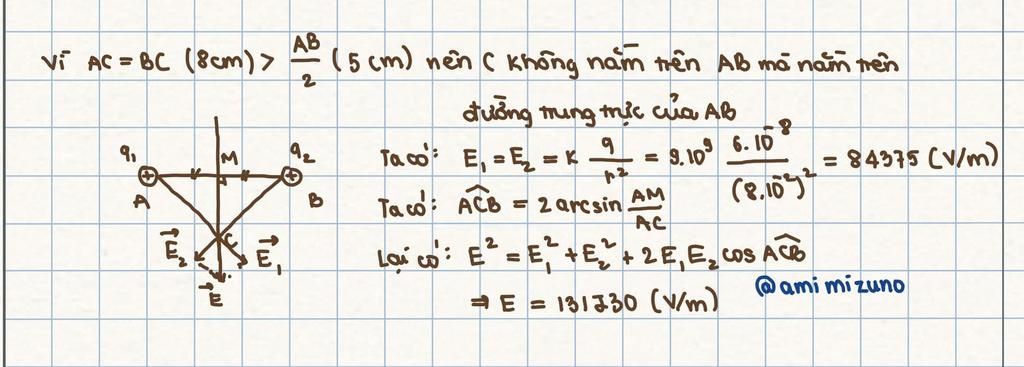 Vì AC = BC (8cm) > AB/2 (5 cm) nên C không nằm trên AB mà nằm trên
đường trung trực của AB
q₁ M q₂
A B
C
E⃗₂ E⃗₁
E⃗
Ta có: E₁ = E₂ = K q/r² = 9.10⁹ 6.10⁻⁸/(8.10⁻²)² = 84375 (V/m)
Ta có: ACB̂ = 2 arcsin AM/AC
Lại có: E² = E₁² + E₂² + 2E₁E₂ cos ACB̂
⇒ E = 131730 (V/m)
@ami mizuno